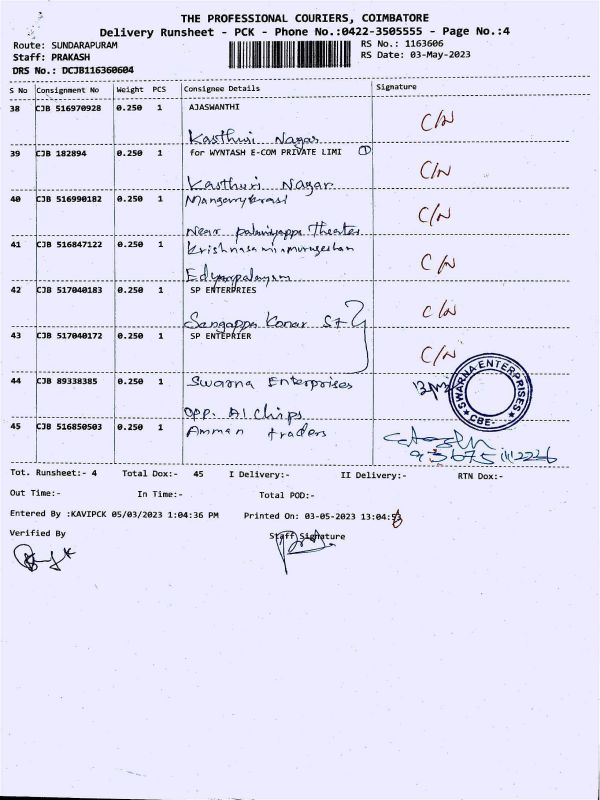 THE PROFESSIONAL COURIERS, COIMBATORE
Delivery Runsheet - PCK - Phone No.:0422-3505555 - Page No.:4
Route: SUNDARAPURAM RS No.: 1163606
Staff: PRAKASH RS Date: 03-May-2023
DRS No.: DCJB116360604
S No Consignment No Weight PCS Consignee Details Signature
38 CJB 516970928 0.250 1 AJASWANTHI C/N
Kasthuri Nagar
39 CJB 182894 0.250 1 for WYNTASH E-COM PRIVATE LIMI ① C/N
Kasthuri Nagar
40 CJB 516990182 0.250 1 C/N
Near Theater
41 CJB 516847122 0.250 1 C/N
42 CJB 517040183 0.250 1 SP ENTERPRIES C/N
Sangappa Konar St
43 CJB 517040172 0.250 1 SP ENTEPRIER C/N
44 CJB 89338385 0.250 1 Swarna Enterprises SWARNA ENTERPRISES CBE
OPP. A1 Chips
45 CJB 516850503 0.250 1 Amman traders
Tot. Runsheet:- 4 Total Dox:- 45 I Delivery:- II Delivery:- RTN Dox:-
Out Time:- In Time:- Total POD:-
Entered By :KAVIPCK 05/03/2023 1:04:36 PM Printed On: 03-05-2023 13:04:53
Verified By Staff Signature